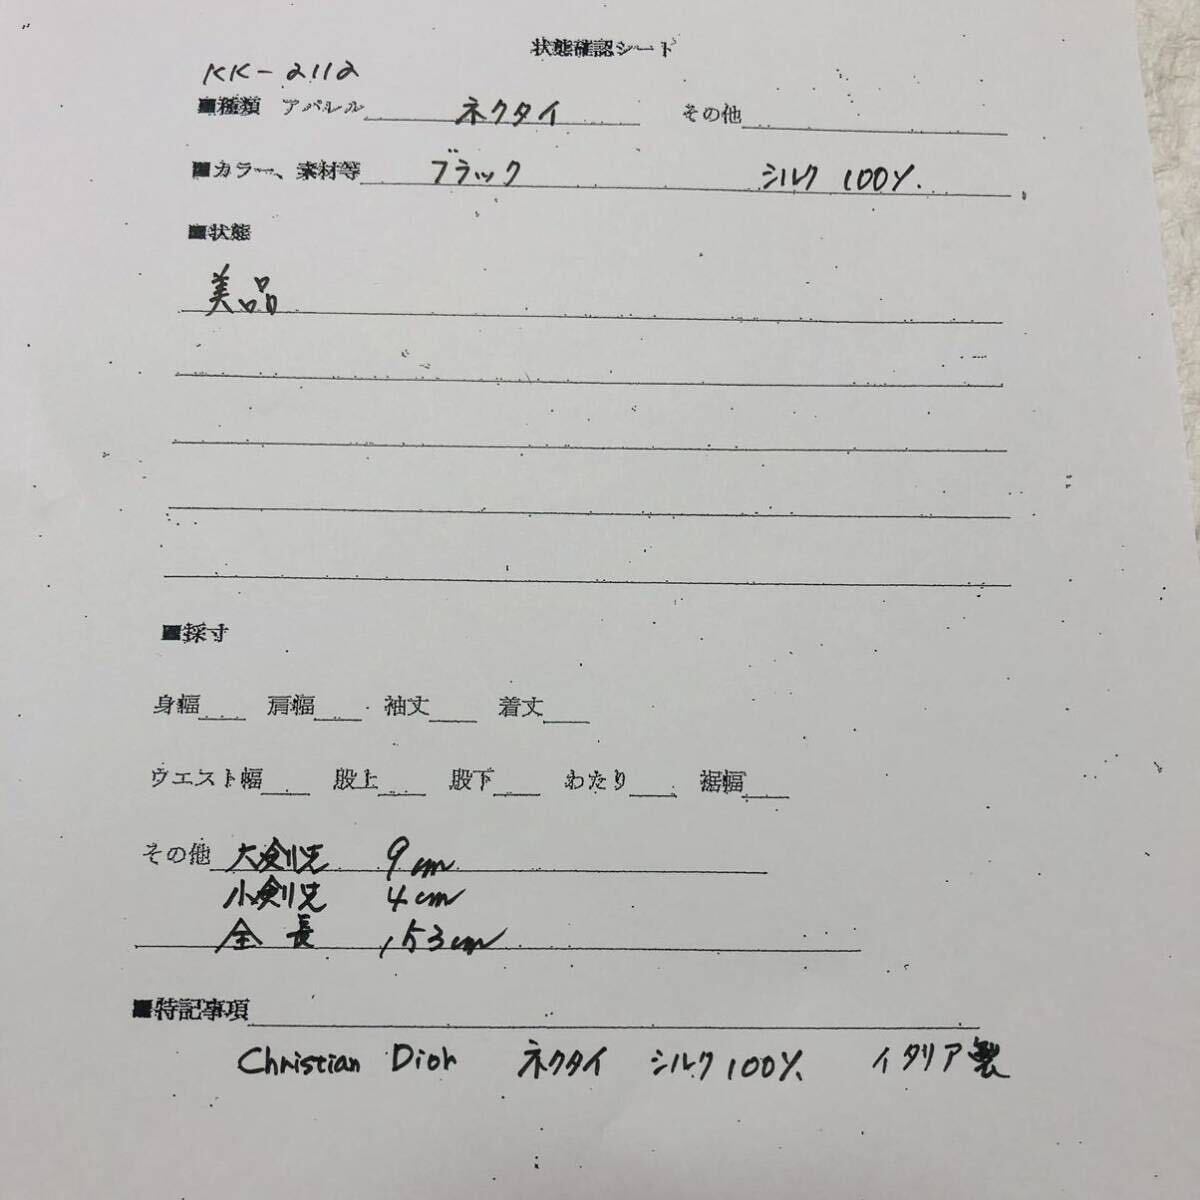 状態確認シート
KK-2112
■種類 アパレル ネクタイ その他
■カラー、素材等 ブラック シルク 100%
■状態
美品
■採寸
身幅 肩幅 袖丈 着丈
ウエスト幅 股上 股下 わたり 裾幅
その他 大剣先 9cm
小剣先 4cm
全長 153cm
■特記事項
Christian Dior ネクタイ シルク100% イタリア製